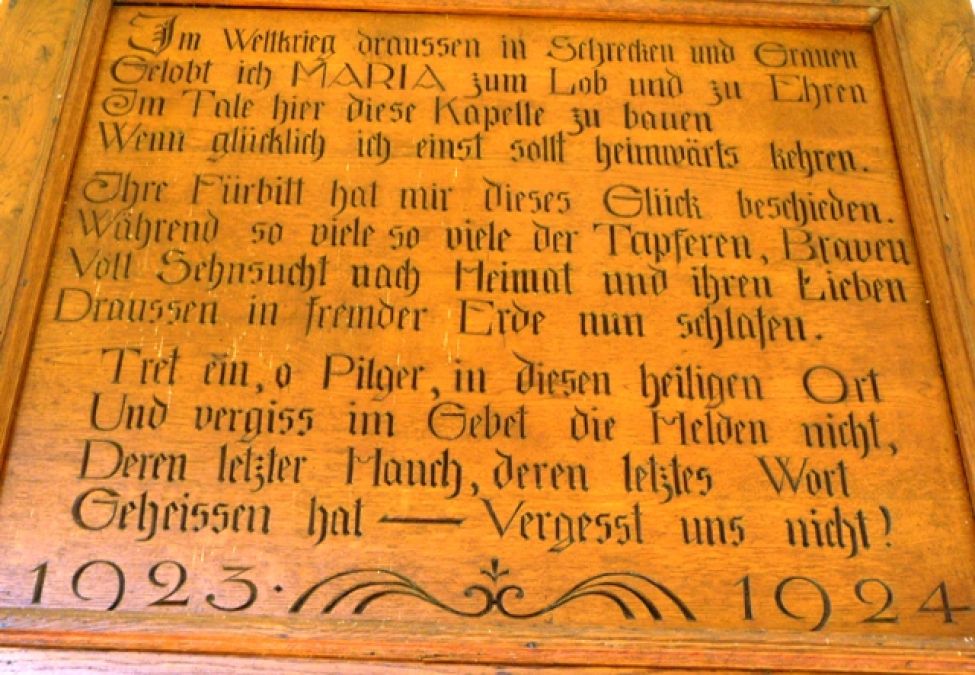 Im Weltkrieg draussen in Schrecken und Grauen
Gelobt ich MARIA zum Lob und zu Ehren
Im Tale hier diese Kapelle zu bauen
Wenn glücklich ich einst sollt heimwärts kehren.
Ihre Fürbitt hat mir dieses Glück beschieden.
Während so viele so viele der Tapferen, Braven
Voll Sehnsucht nach Heimat und ihren Lieben
Draussen in fremder Erde nun schlafen.
Tret ein, o Pilger, in diesen heiligen Ort
Und vergiss im Gebet die Helden nicht,
Deren letzter Hauch, deren letztes Wort
Geheissen hat — Vergesst uns nicht!
1923. 1924